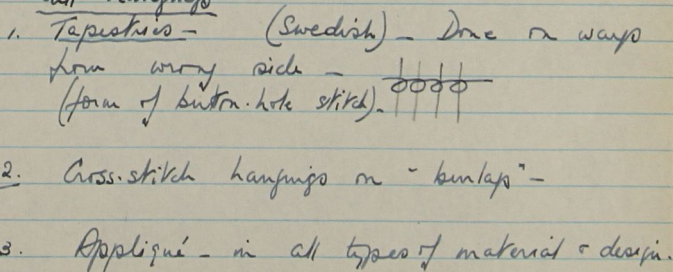 Wall Hangings
1. Tapestries - (Swedish) - Done on warps
from wrong side -
(form of button-hole stitch).
2. Cross-stitch hangings on "burlap" -
3. Appliqué - in all types of material & design.